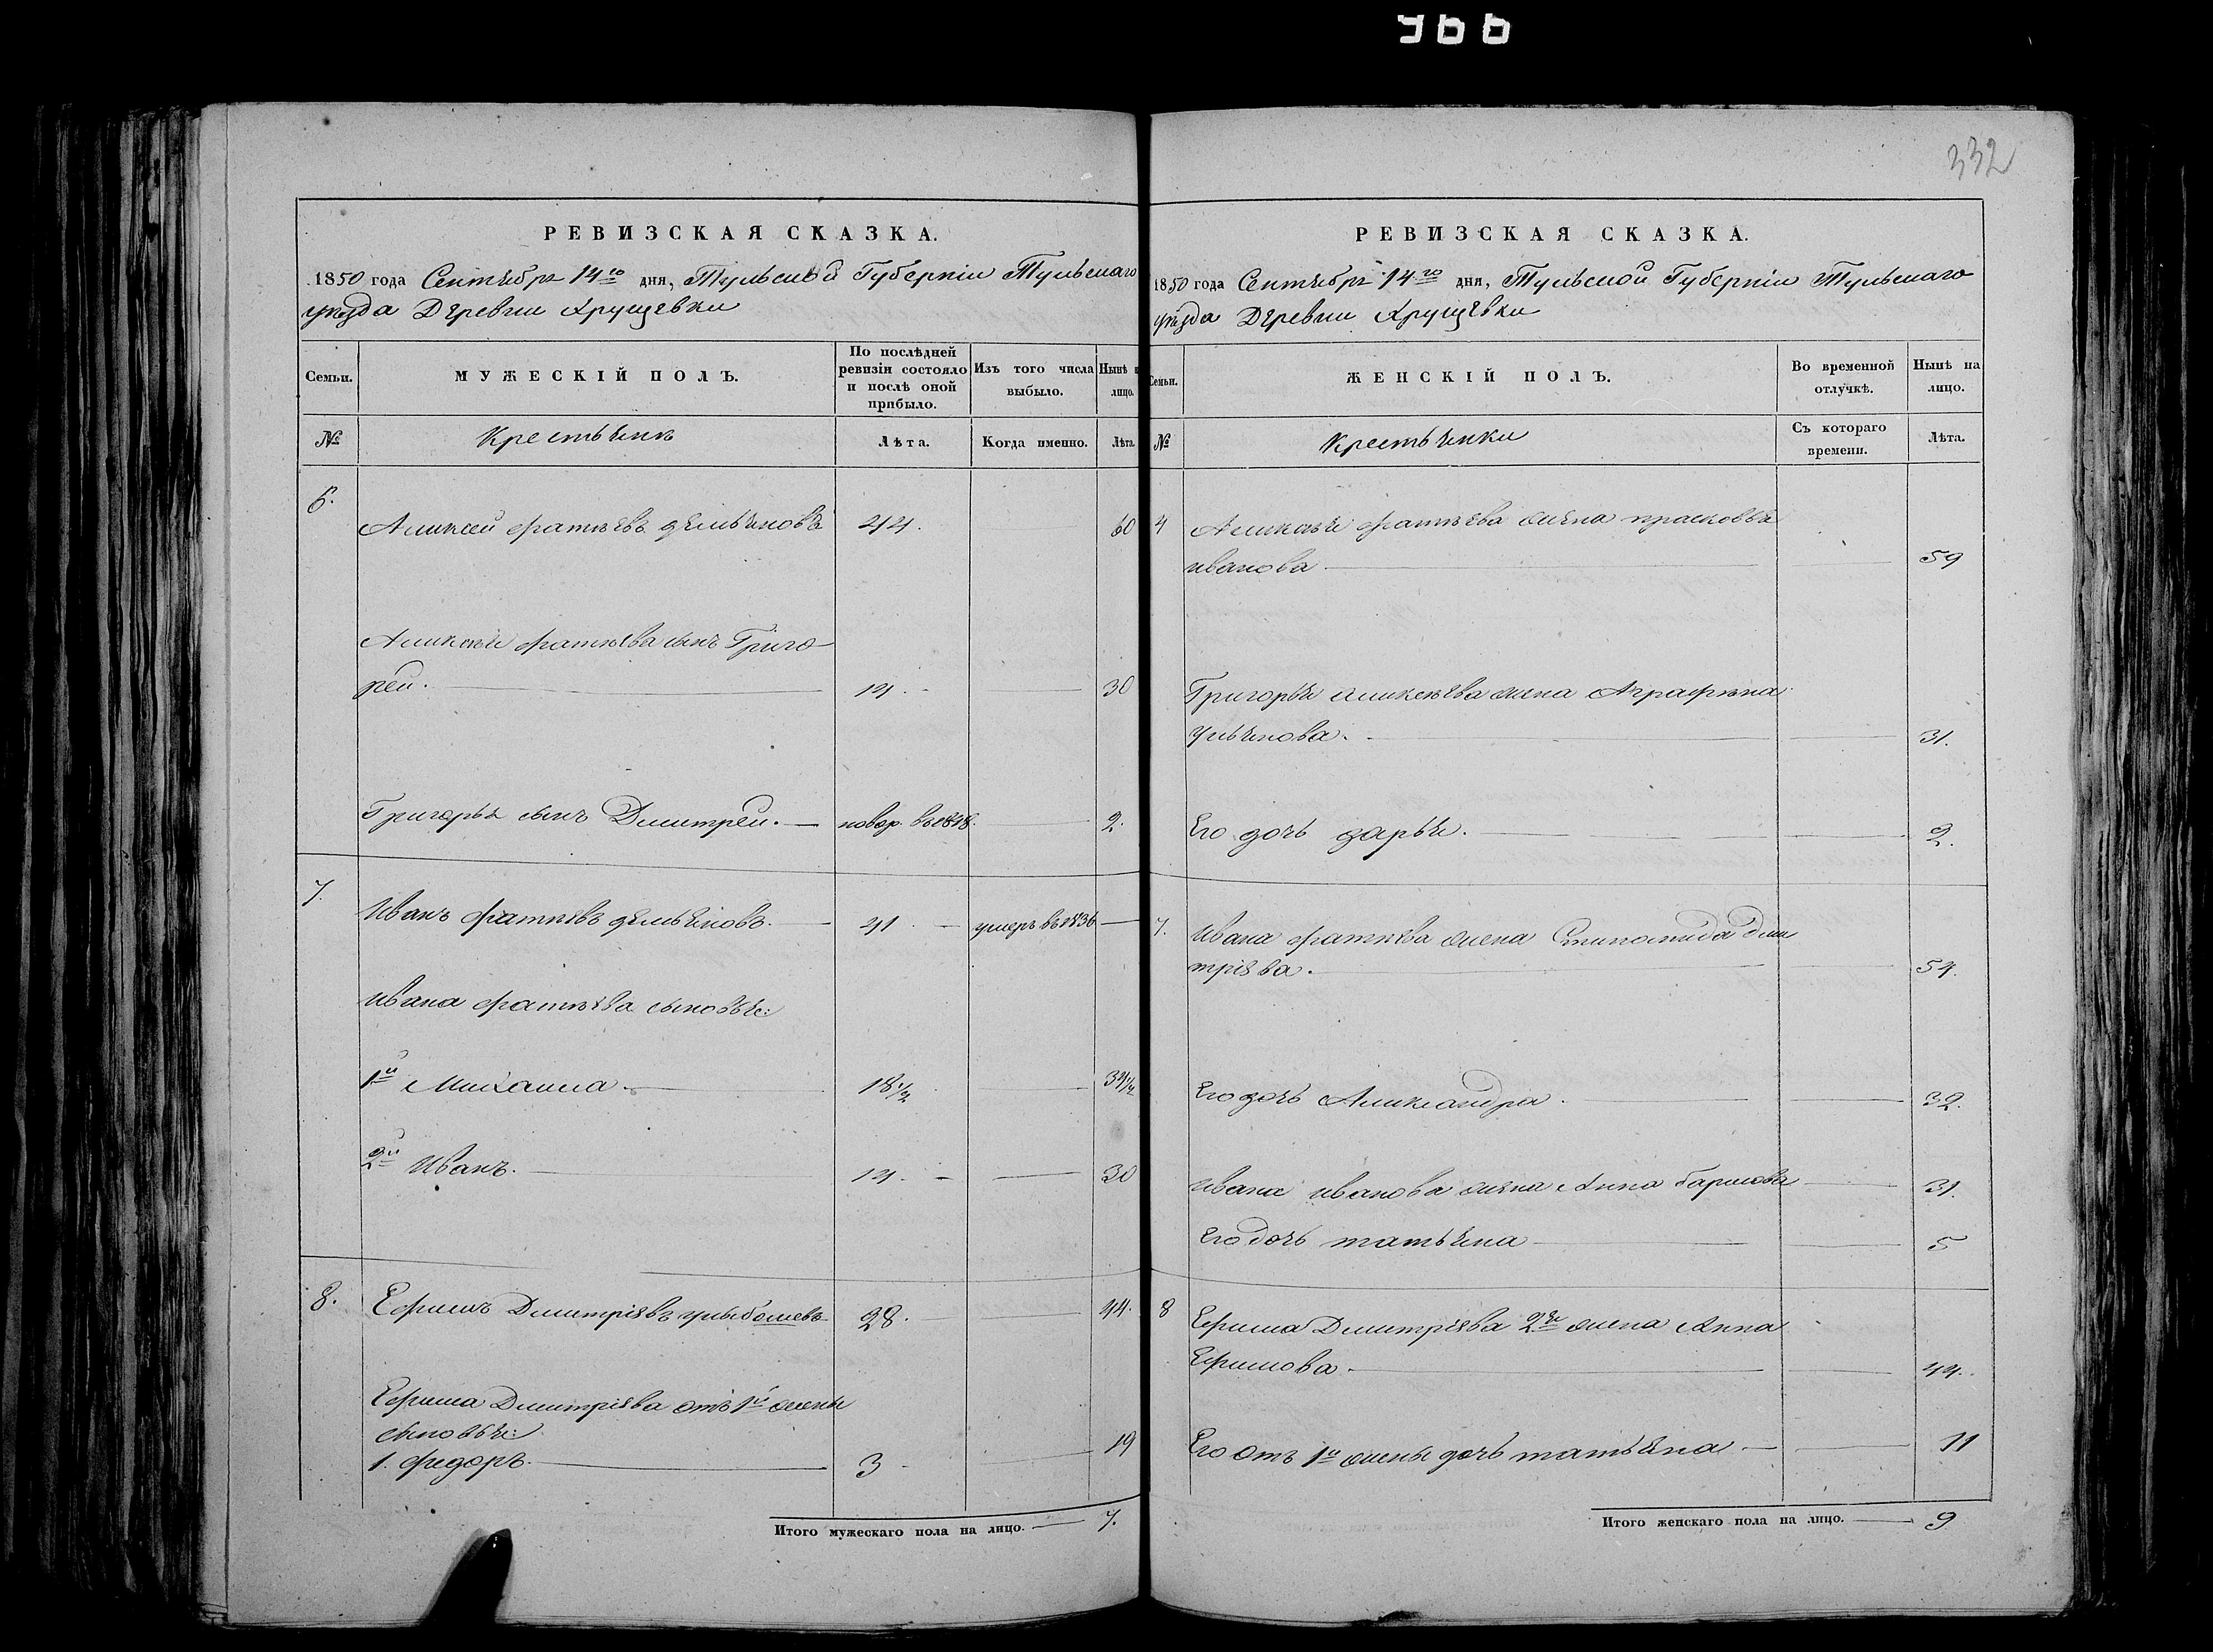 366
332
РЕВИЗСКАЯ СКАЗКА.
1850 года Сентября 14го дня, Тульской Губерніи Тульскаго
уѣзда Деревни Хрущевки
Семьи.
МУЖЕСКІЙ ПОЛЪ.
По послѣдней
ревизіи состояло
и послѣ оной
прибыло.
Изъ того числа
выбыло.
Нынѣ н
лицо.
№
Крестьянъ
Лѣта.
Когда именно.
Лѣта.
6.
Аликсей фатѣевъ 44. 60
Аликсѣя фатѣева сынъ Григо-
рей. 14. 30
Григорья сынъ Дмитрей. новор. въ 1848. 2.
7.
Иванъ фатѣевъ 41. умеръ въ 1836
Ивана фатѣева сыновья:
1й Михаила 18 1/2 34 1/2
2й Иванъ. 14. 30
8. Ефимъ Дмитріявъ 28. 44.
Ефима Дмитріява отъ 1й жены
сыновья:
1. федоръ. 3 19
Итого мужескаго пола на лицо. 7.
РЕВИЗСКАЯ СКАЗКА.
1850 года Сентября 14го дня, Тульской Губерніи Тульскаго
уѣзда Деревни Хрущевки
Семьи.
ЖЕНСКІЙ ПОЛЪ.
Во временной
отлучкѣ.
Нынѣ на
лицо.
№
Крестьянки
Съ котораго
времени.
Лѣта.
Аликсѣя фатѣева жена прасковья
иванова 59
Григорья аликсѣева жена Аграфѣна
Ульянова. 31.
Его дочь дарья. 2.
7. Ивана фатѣева жена Дми
тріява. 54.
Его дочь Аликсандра. 32.
Ивана иванова жена Анна 31.
Его дочь татьяна 5
8 Ефима Дмитріява 2я жена Анна
Ефимова 44.
Его отъ 1й жены дочь татьяна 11
Итого женскаго пола на лицо. 9